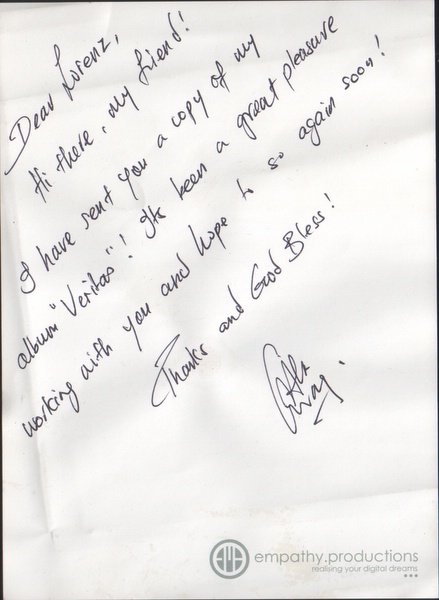 Dear Lorenz,
Hi there, my friend!
I have sent you a copy of my
album "Veritas"! Its been a great pleasure
working with you and hope to so again soon!
Thanks and God Bless!
empathy.productions
realising your digital dreams